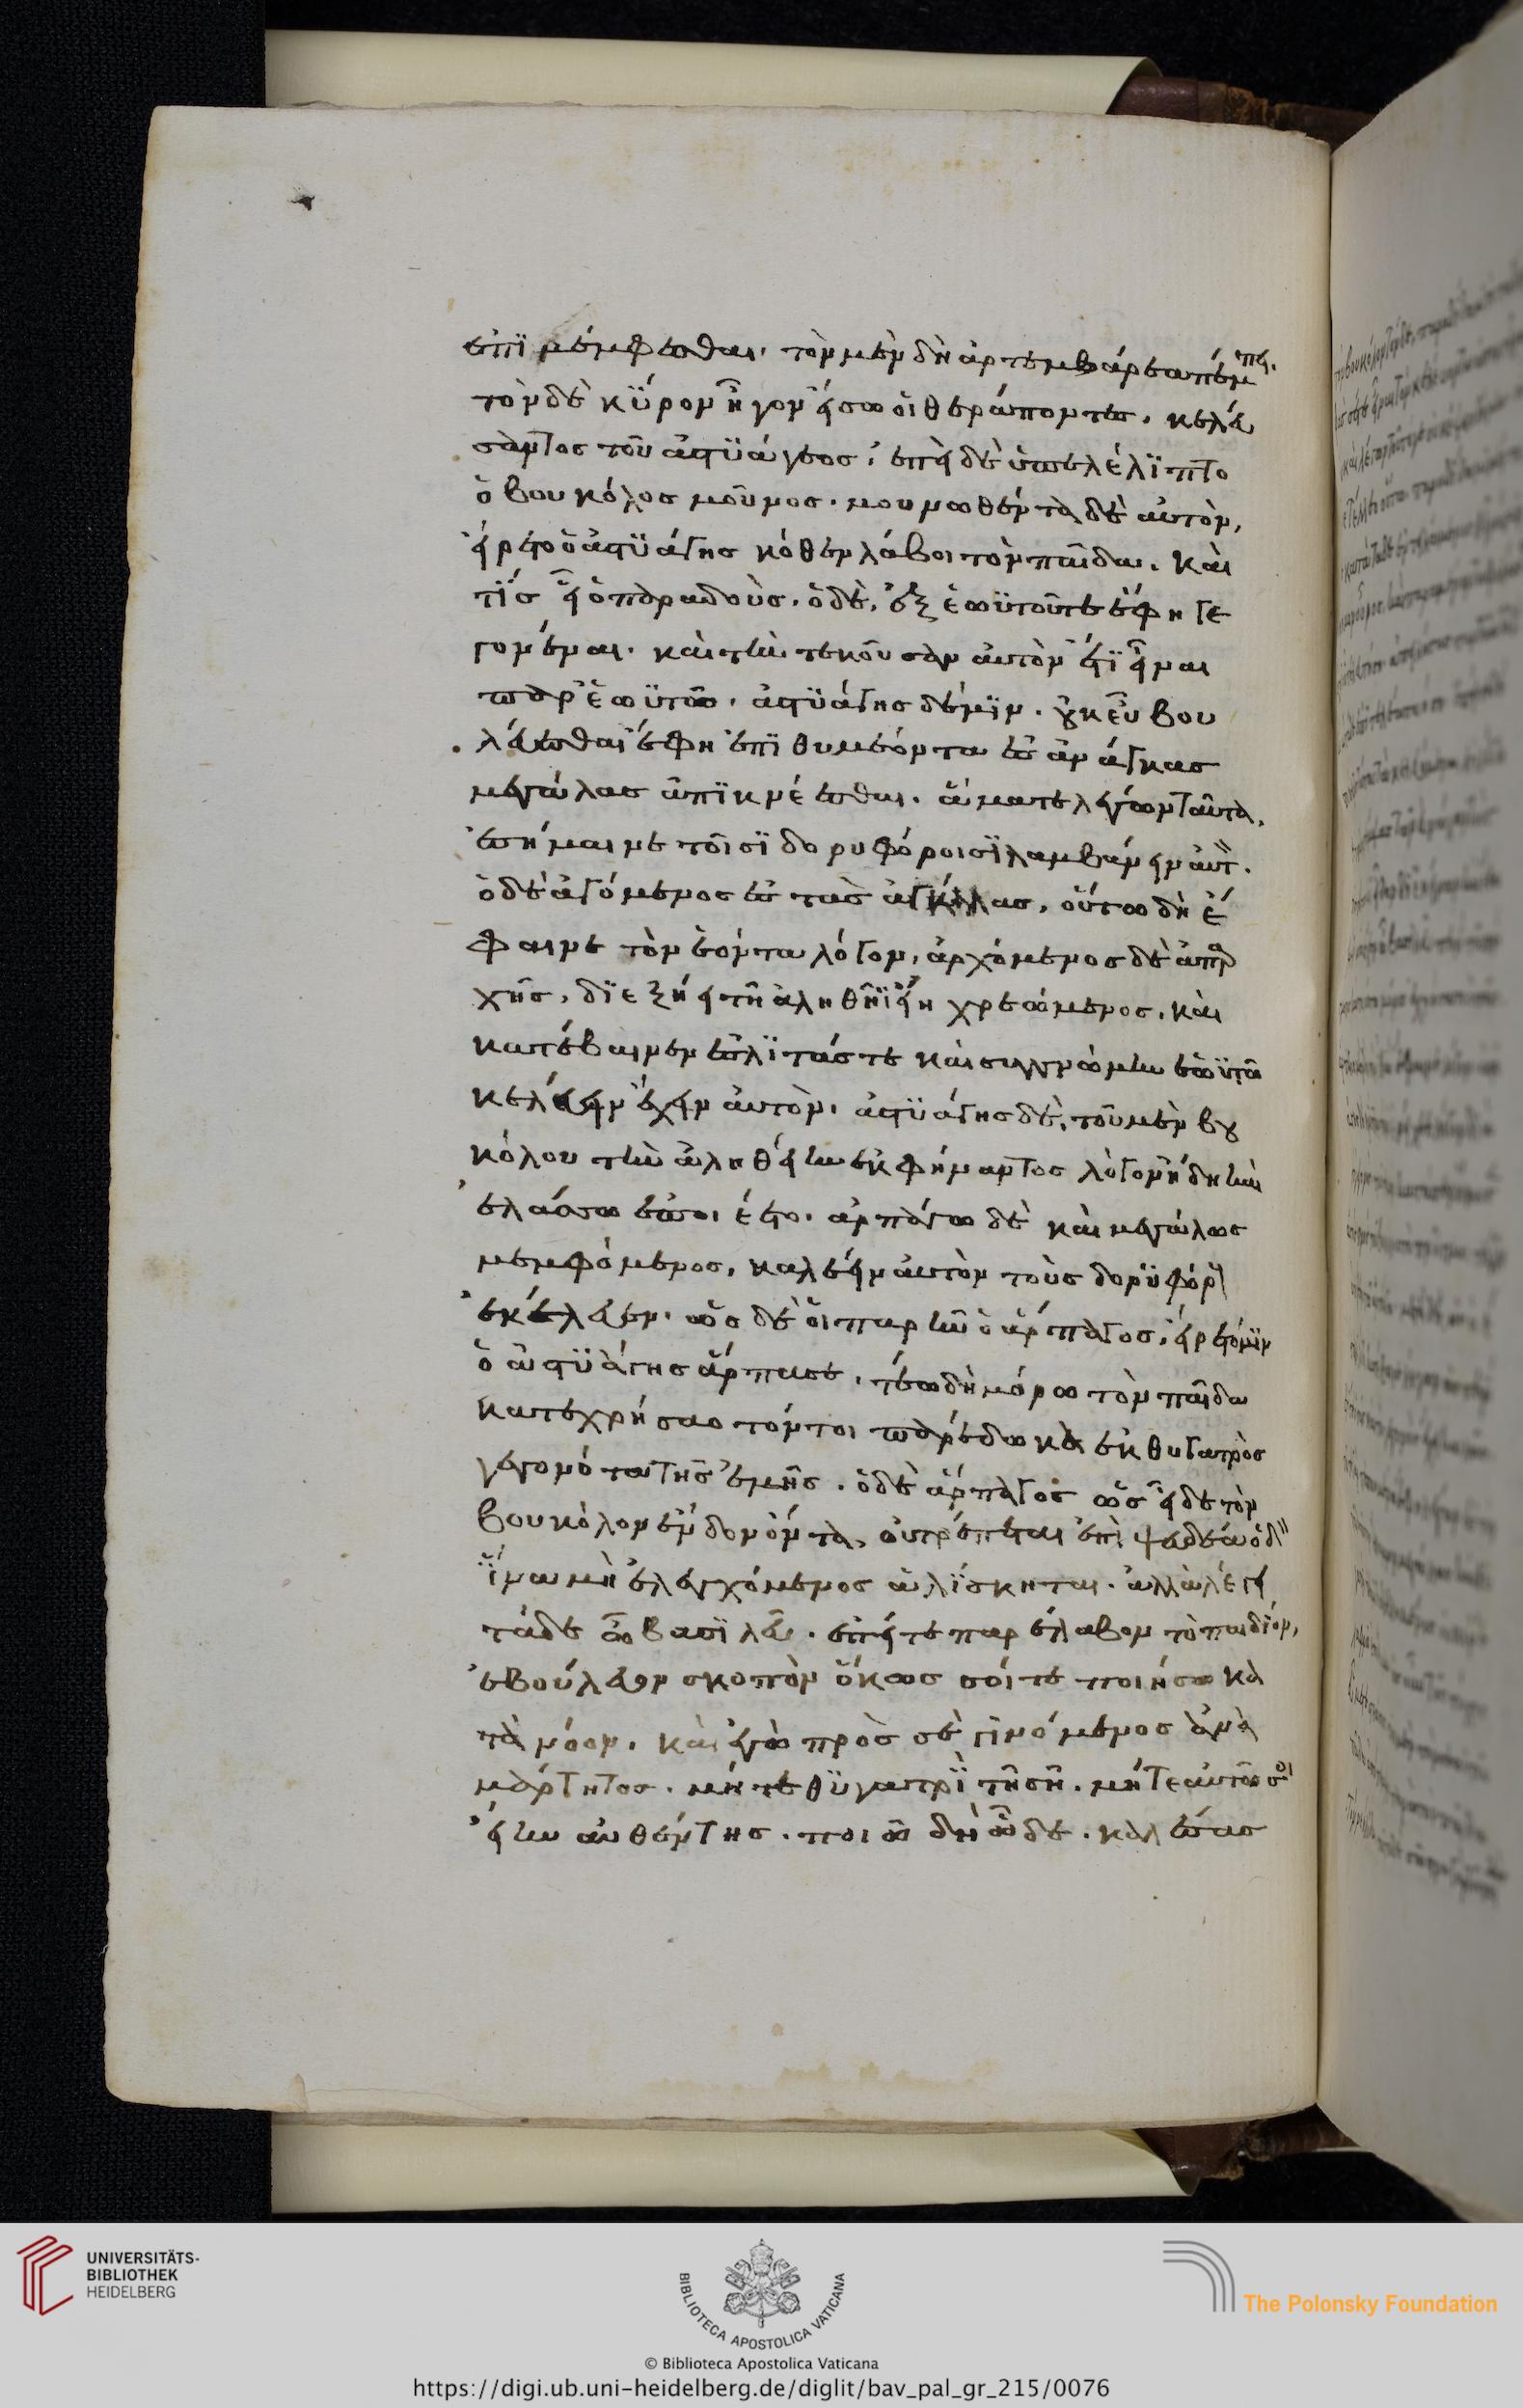 ἐπϊμέμφεσθαι. τὸν μὲν δὴ ἀρτεμβάρεα πέμπει.
τὸν δὲ κῦρον ἦγον ἔσω ὁι θεράποντες, κελεύ
σαντος τοῦ ἀστυάγεος. ἐπεὶ δὲ ὑπελέλϊπτο
ὁ βουκόλος μοῦνος. μουνωθέντα δὲ αὐτὸν,
εἴρετο ὁ ἀστυάγης κόθεν λάβοι τὸν παῖδα. καὶ
τίς εἴη ὁ παραδοὺς. ὁ δὲ, ἐξ ἑωϋτοῦ τε ἔφη γε
γονέναι. καὶ τὴν τεκοῦσαν αὐτὸν ἔτϊ εἶναι
παρ' ἑωϋτῶ. ἀστυάγης δέ μϊν. οὐκ εὖ βου
λεύεσθαι ἔφη ἐπϊθυμέοντα ἐς ἀνάγκας
μεγάλας ἀπϊκνέεσθαι. ἅμα τε λέγων ταῦτα,
ἐσήμαινε τοῖσϊ δορυφόροισϊ λαμβάνειν αὐτ.
ὁ δὲ ἀγόμενος ἐς τὰς ἀνάγκας, οὕτω δὴ ἔ
φαινε τὸν ἐόντα λόγον, ἀρχόμενος δὲ ἀπ' ἀρ
χῆς, δϊεξήει τῆ ἀληθηΐη χρεώμενος. καὶ
κατέβαινεν ἐς λϊτάς τε καὶ συγγνώμην ἑωϋτῶ
κελεύων ἔχειν αὐτὸν. ἀστυάγης δὲ, τοῦ μὲν βου
κόλου τὴν ἀληθείην ἐκφήναντος λόγον ἤδη καὶ
ἐλάσσω ἐποιέετο. ἁρπάγω δὲ καὶ μεγάλως
μεμφόμενος, καλέειν αὐτὸν τοὺς δορυφόρ
ἐκέλευεν. ὡς δὲ ὁι παρῆν ὁ ἅρπαγος, εἴρετό μϊν
ὁ ἀστυάγης ἅρπαγε, τέω δὴ μόρω τὸν παῖδα
κατεχρήσαο τόν τοι παρέδωκα ἐκ θυγατρὸς
γεγονότα τῆς ἐμῆς. ὁ δὲ ἅρπαγος ὡς εἶδε τὸν
βουκόλον ἔνδον ἐόντα, οὐ τρέπεται ἐπὶ ψευδέα ὁδ
ἵνα μὴ ἐλεγχόμενος ἁλίσκηται. ἀλλὰ λέγει
τάδε ὦ βασϊλεῦ. ἐπεί τε παρέλαβον τὸ παιδίον,
ἐβούλευον σκοπῶν ὅκως σοί τε ποιήσω κα
τὰ νόον. καὶ ἐγὼ πρὸς σὲ γϊνόμενος ἀνα
μάρτητος. μήτε θυγατρϊ τῆ σῆ. μήτε αὐτῶ σοὶ
εἴην αὐθέντης. ποιῶ δὴ ὧδε. καλέσας
UNIVERSITÄTS-
BIBLIOTHEK
HEIDELBERG
BIBLIOTECA APOSTOLICA VATICANA
The Polonsky Foundation
© Biblioteca Apostolica Vaticana
https://digi.ub.uni-heidelberg.de/diglit/bav_pal_gr_215/0076